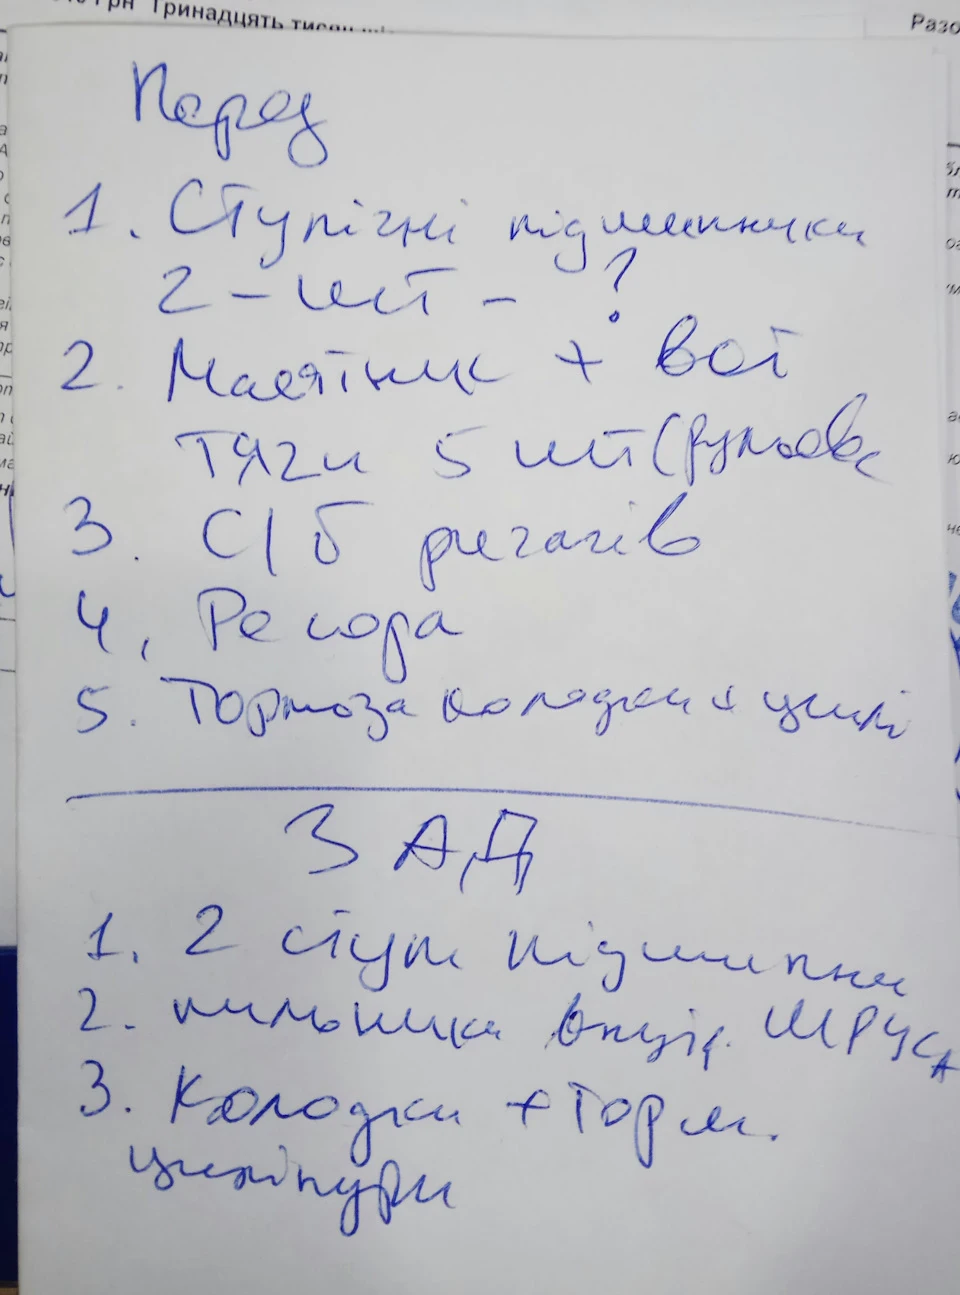 грн Тринадцять тисяч
Разо
Перед
1. Ступічні підшипники
2 - шт - ?
2. Маятник + всі
тяги 5 шт (рульов
3. С/б ричагів
4, Ресора
5. Тормоза колодки + цилі
ЗАД
1. 2 ступ підшипни
2. пильники внутр. ШРУСА
3. Колодки + торм.
циліндри